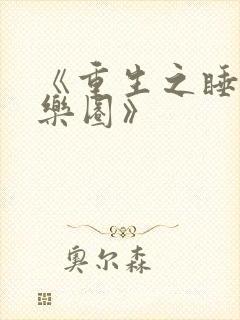 《重生之睡
樂園》
奥尔森